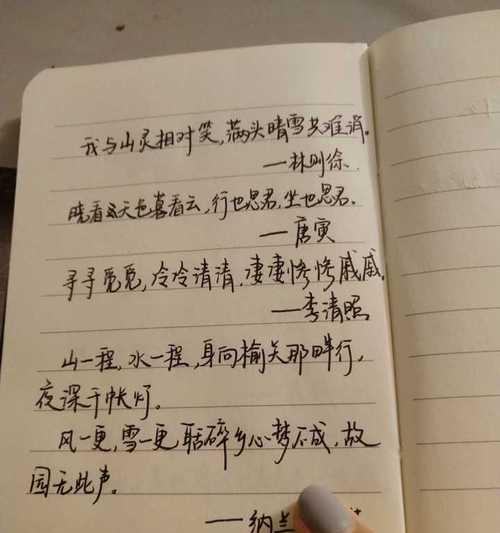 我与山灵相对笑，满头晴雪共难消。
—林则徐
晓看天色暮看云，行也思君，坐也思君。
—唐寅
寻寻觅觅，冷冷清清，凄凄惨惨戚戚。
—李清照
山一程，水一程，身向榆关那畔行，
夜深千帐灯。
风一更，雪一更，聒碎乡心梦不成，故
园无此声。
—纳兰